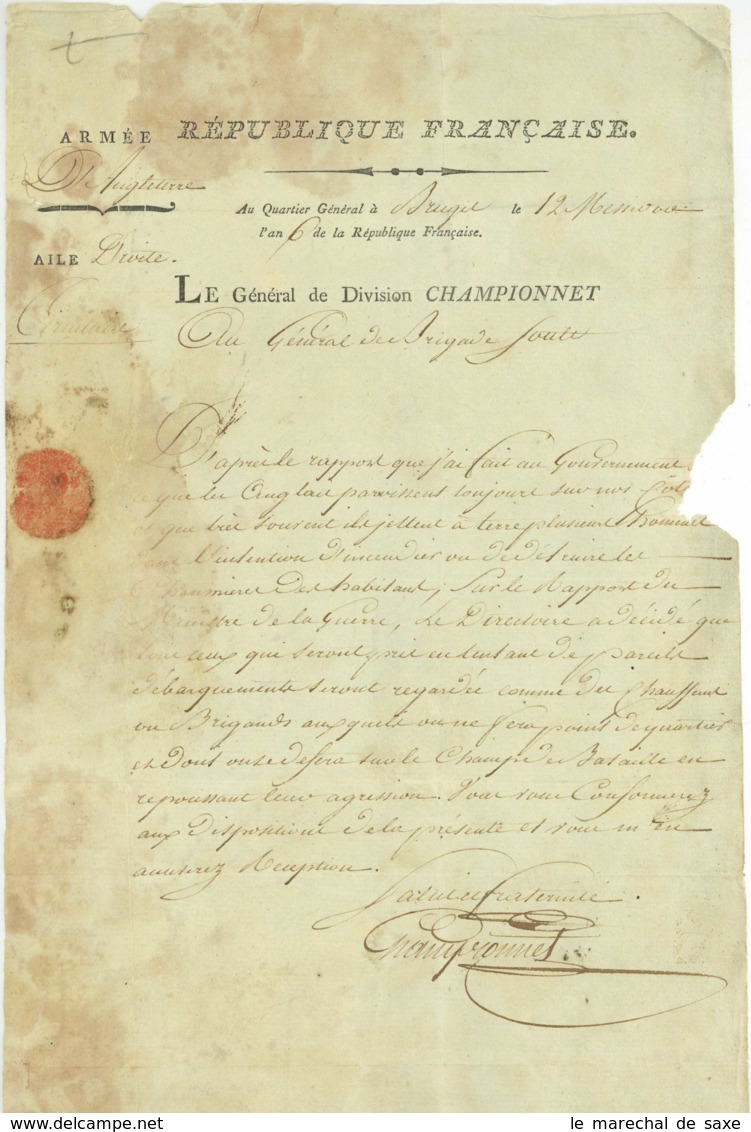 ARMÉE RÉPUBLIQUE FRANÇAISE.
D'Angleterre
Au Quartier Général à Bruges le 12 Messidor
l'an 6 de la République Française.
AILE Droite.
LE Général de Division CHAMPIONNET
Circulaire
Au Général de Brigade Soult
D'après le rapport que j'ai fait au Gouvernement
que les Anglais paroissent toujours sur nos Côt
et que très souvent ils jettent à terre plusieurs hommes
dans l'intention d'incendier ou de détruire les
Chaumieres des habitans, sur le Rapport du
Ministre de la Guerre, Le Directoire a décidé que
tous ceux qui seront pris en tentant de pareils
débarquements seront regardés comme des Chauffeurs
ou Brigands auxquels on ne fera point de quartier
et dont on se defera sur le Champ de Bataille en
repoussant leur agression. Vous vous Conformerez
aux Dispositions de la présente et vous m'en
accuserez Reception.
Salut et fraternité.
Championnet
le marechal de saxe